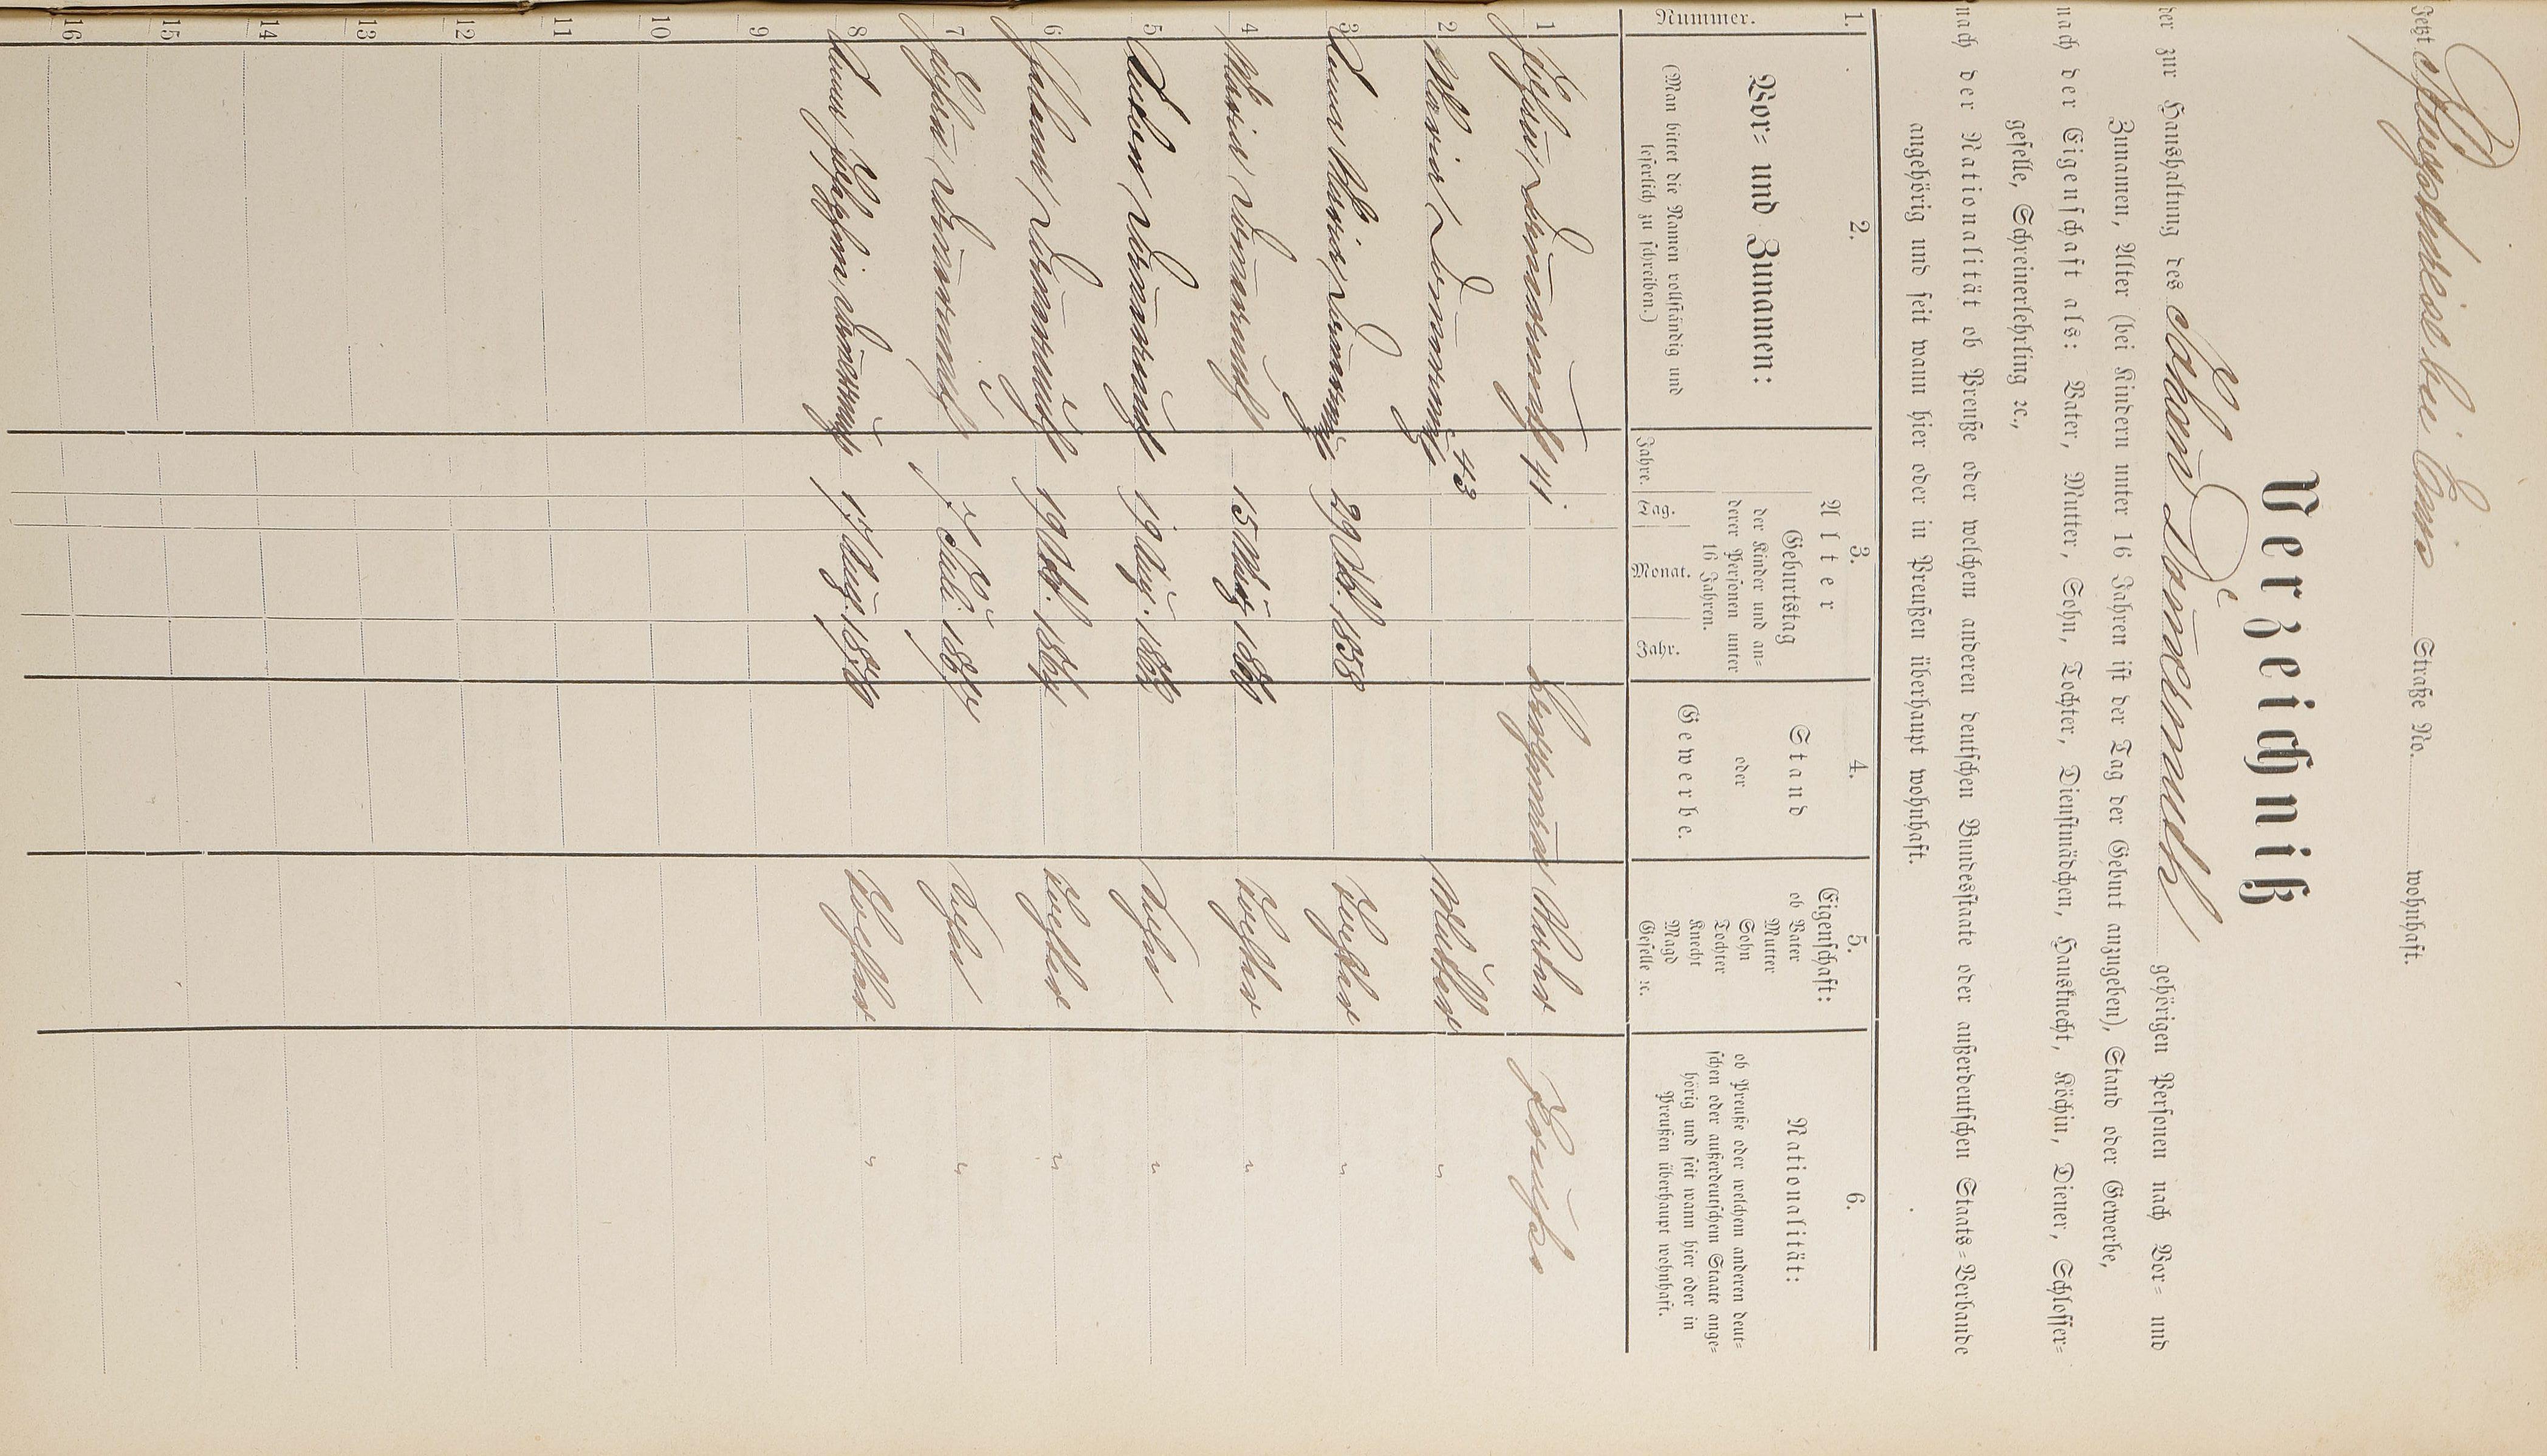 Jetzt bei Ems Straße No. wohnhaft.
Verzeichniß
der zur Haushaltung des Johann Domermuth gehörigen Personen nach Vor= und
Zunamen, Alter (bei Kindern unter 16 Jahren ist der Tag der Geburt anzugeben), Stand oder Gewerbe,
nach der Eigenschaft als: Vater, Mutter, Sohn, Tochter, Dienstmädchen, Hausknecht, Köchin, Diener, Schlosser=
geselle, Schreinerlehrling ꝛc.,
nach der Nationalität ob Preuße oder welchem anderen deutschen Bundesstaate oder außerdeutschen Staats=Verbande
angehörig und seit wann hier oder in Preußen überhaupt wohnhaft.
1. 2. 3. 4. 5. 6.
Nummer.
Vor= und Zunamen:
(Man bittet die Namen vollständig und
leserlich zu schreiben.)
Alter
Jahre.
Geburtstag
der Kinder und an=
derer Personen unter
16 Jahren.
Tag. Monat. Jahr.
Stand
oder
Gewerbe.
Eigenschaft:
ob Vater
Mutter
Sohn
Tochter
Knecht
Magd
Geselle ꝛc.
Nationalität:
ob Preuße oder welchem anderen deut=
schen oder außerdeutschem Staate ange=
hörig und seit wann hier oder in
Preußen überhaupt wohnhaft.
1 Johann Domermuth 41 Bergmann Vater Preuße
2 Maria Domermuth 43 Mutter "
3 Anna Maria Domermuth 29 Okt. 1858 Tochter "
4 Maria Domermuth 15 Aug. Tochter "
5 Anton Domermuth 19 Aug. Sohn "
6 Domermuth 19 Okt. 1864 Tochter "
7 Johann Domermuth 7 Juli Sohn "
8 Anna Domermuth 17 Aug. 1870 Tochter "
9
10
11
12
13
14
15
16